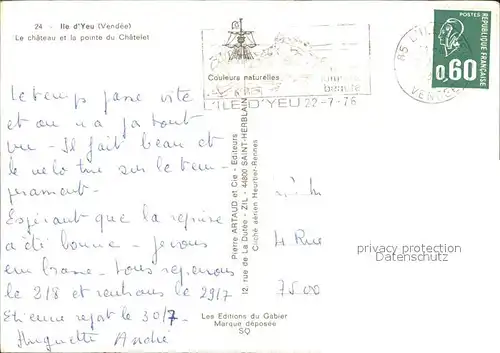 24 - Ile d'Yeu (Vendée)
Le château et la pointe du Châtelet
Couleurs naturelles
beauté
L'ILE D'YEU 22-7-76
85 L'IL
VENDÉE
POSTES
0,60
REPUBLIQUE FRANÇAISE
Le temps passe vite
et on a pas tout
vu - Il fait beau et
le vélo tue sur le tem-
pérament.
Espérant que la reprise
a été bonne - je vous
embrasse - Nous
le 2/8 et rentrons le 29/7
Etienne repart le 30/7
Huguette André
Pierre ARTAUD et Cie - Editeurs
12, rue de La Dutée - ZIL - 44800 SAINT-HERBLAIN
Cliché aérien Heurtier-Rennes
4 Rue
75000
privacy protection
Datenschutz
Les Editions du Gabier
Marque déposée
SQ